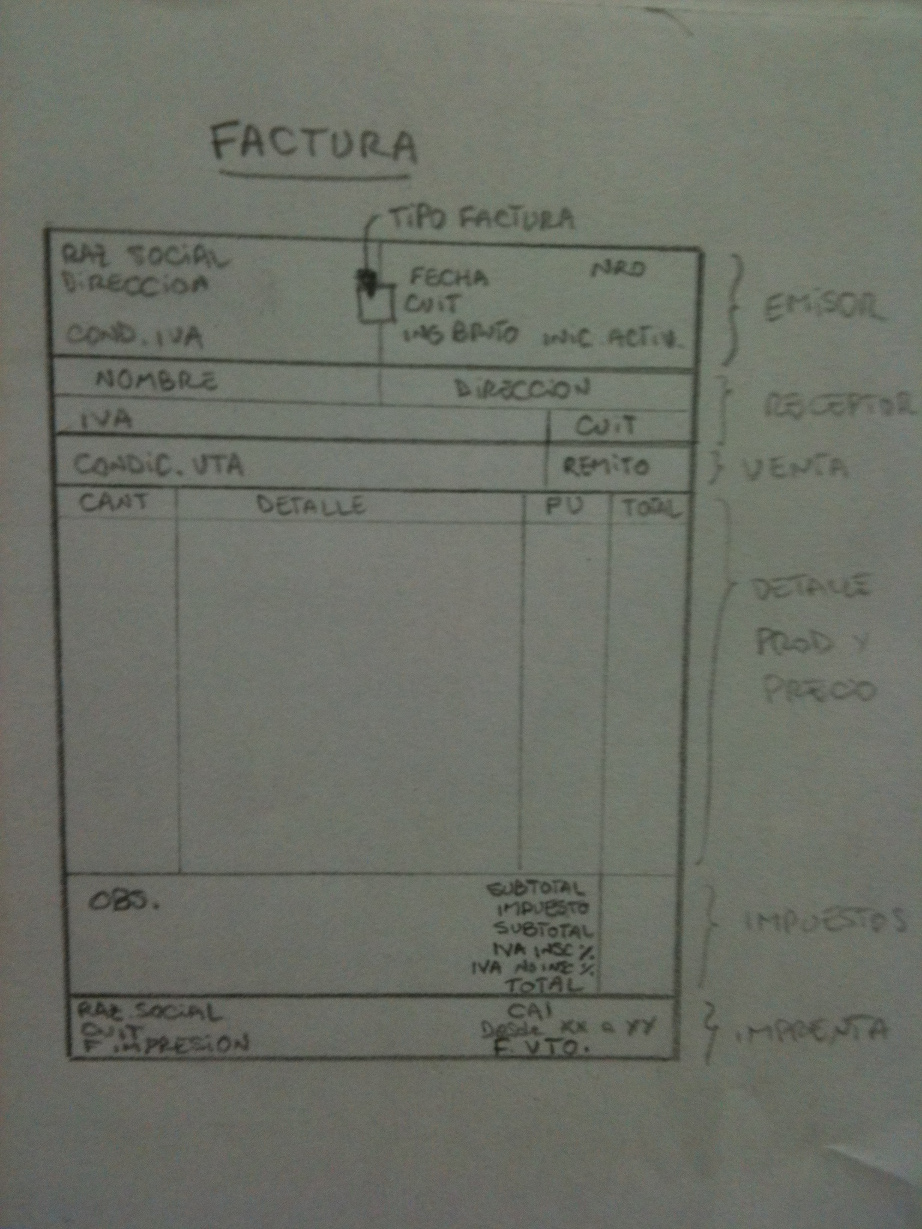 FACTURA
TIPO FACTURA
RAZ SOCIAL
DIRECCION
COND. IVA
FECHA NRO
CUIT
ING BRUTO INIC. ACTIV.
EMISOR
NOMBRE DIRECCION
IVA CUIT
RECEPTOR
CONDIC. VTA REMITO
VENTA
CANT DETALLE PU TOTAL
DETALLE
PROD Y
PRECIO
OBS.
SUBTOTAL
IMPUESTO
SUBTOTAL
IVA INSC %
IVA NO INSC %
TOTAL
IMPUESTOS
RAZ. SOCIAL
CUIT
F. IMPRESION
CAI
Desde xx a YY
F. VTO.
IMPRENTA